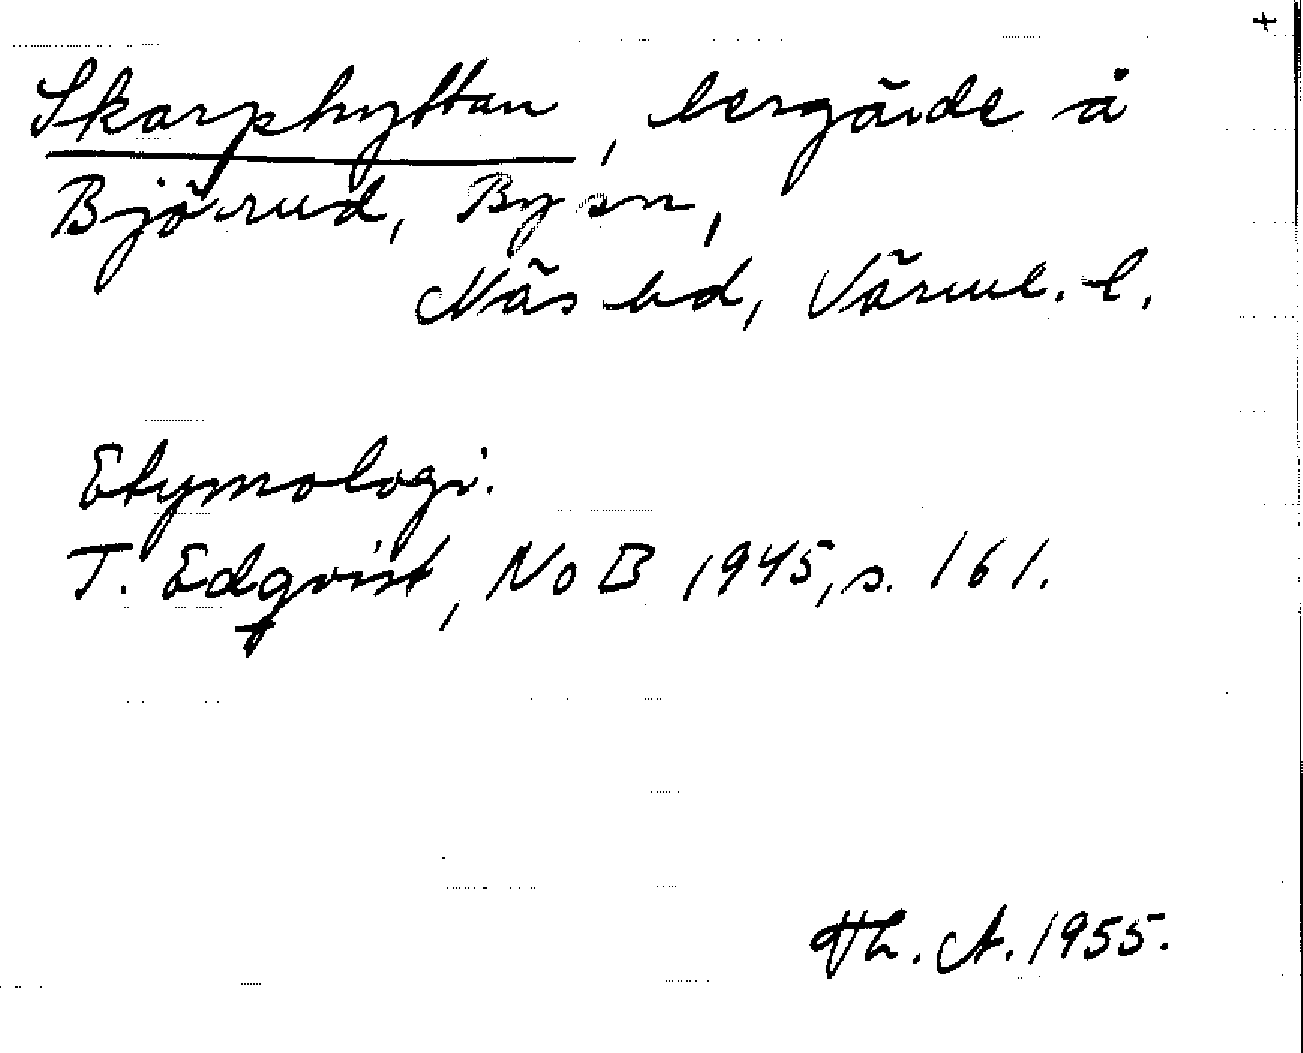 +
Skarphyttan, bergärde å
Björud, By sn,
Näs hd, Värml. l.
Etymologi.
T. Edqvist, NoB 1945, s. 161.
Th. A. 1955.